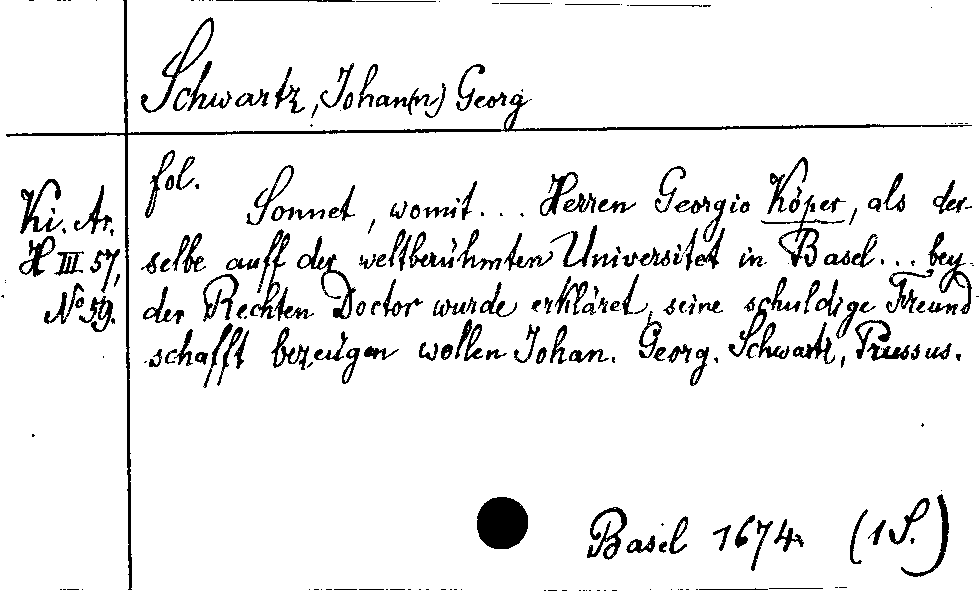 Schwartz, Johan(n) Georg
fol.
Ki. Ar.
H III 57,
No 59.
Sonnet, womit... Herren Georgio Köper, als der-
selbe auff der weltberühmten Universitet in Basel... bey-
der Rechten Doctor wurde erkläret, seine schuldige Freund
schafft bezeugen wollen Johan. Georg. Schwartz, Prussus.
Basel 1674. (1 S.)